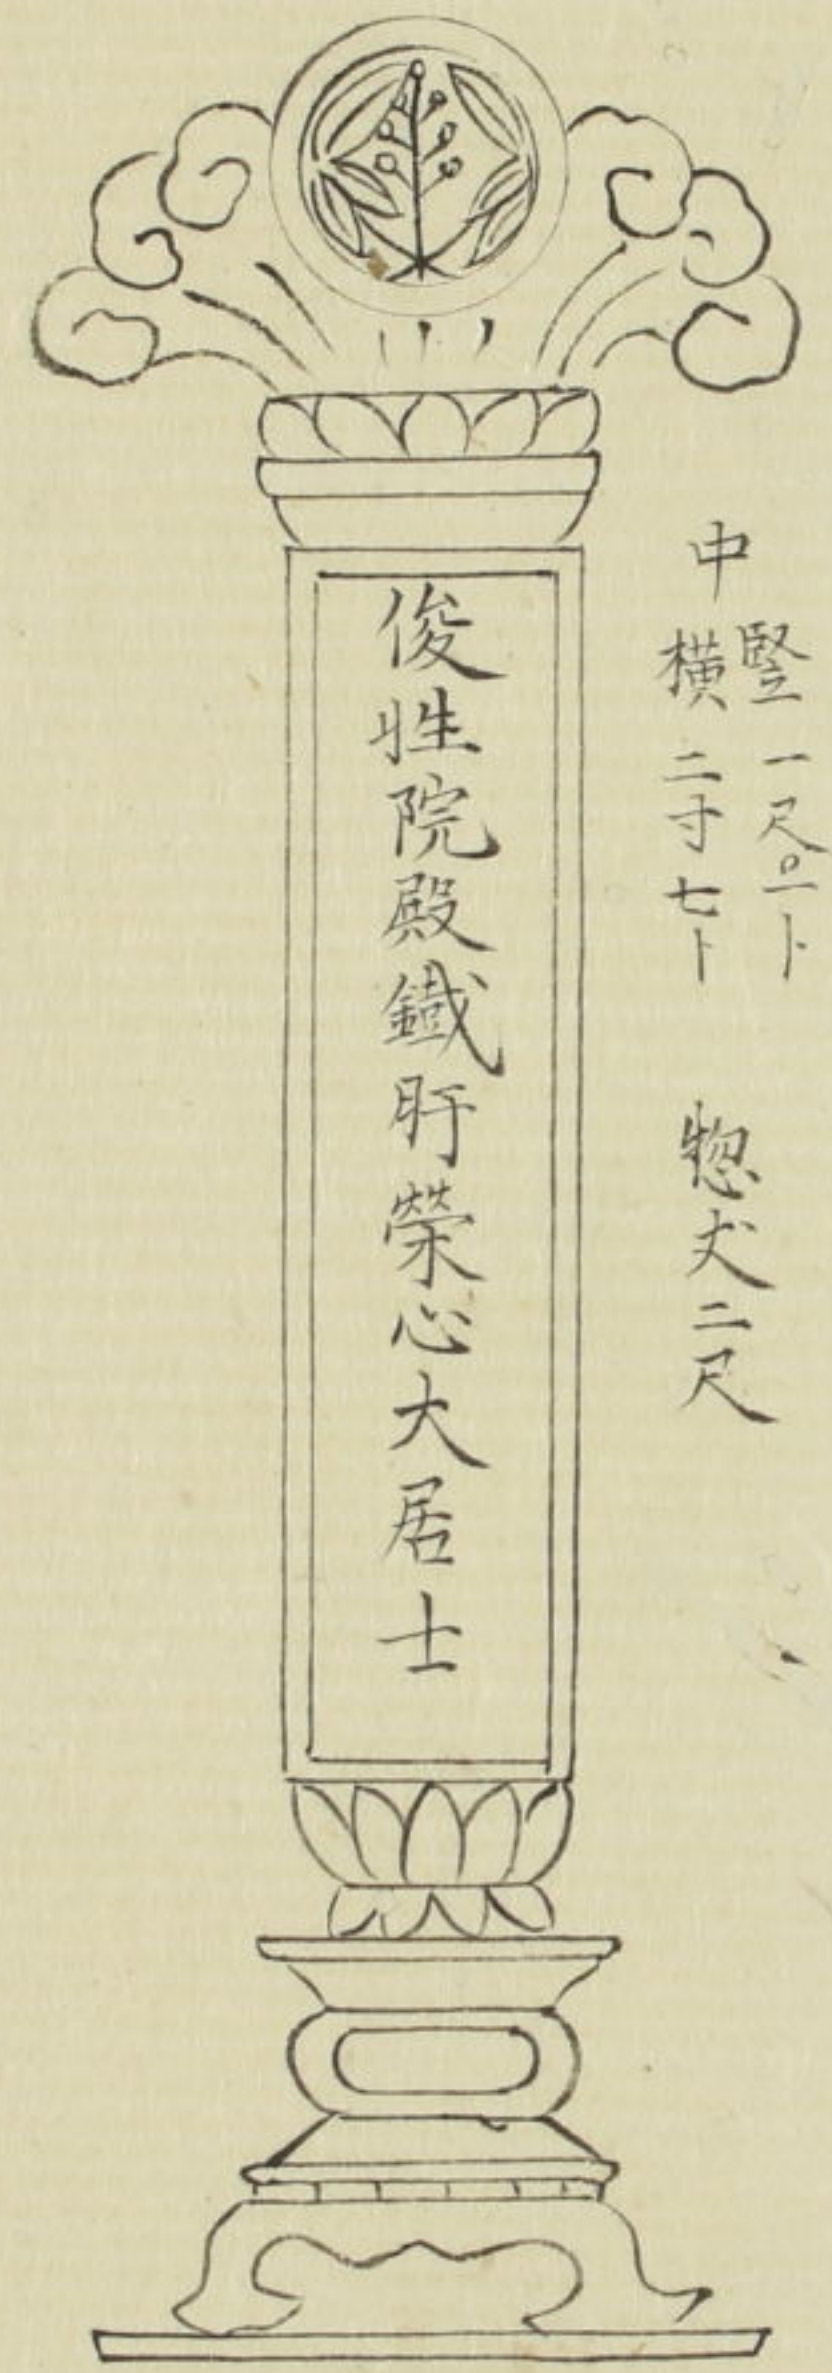 中
竪一尺〇一卜
横二寸七卜
惣丈二尺
俊性院殿鐵肝榮心大居士